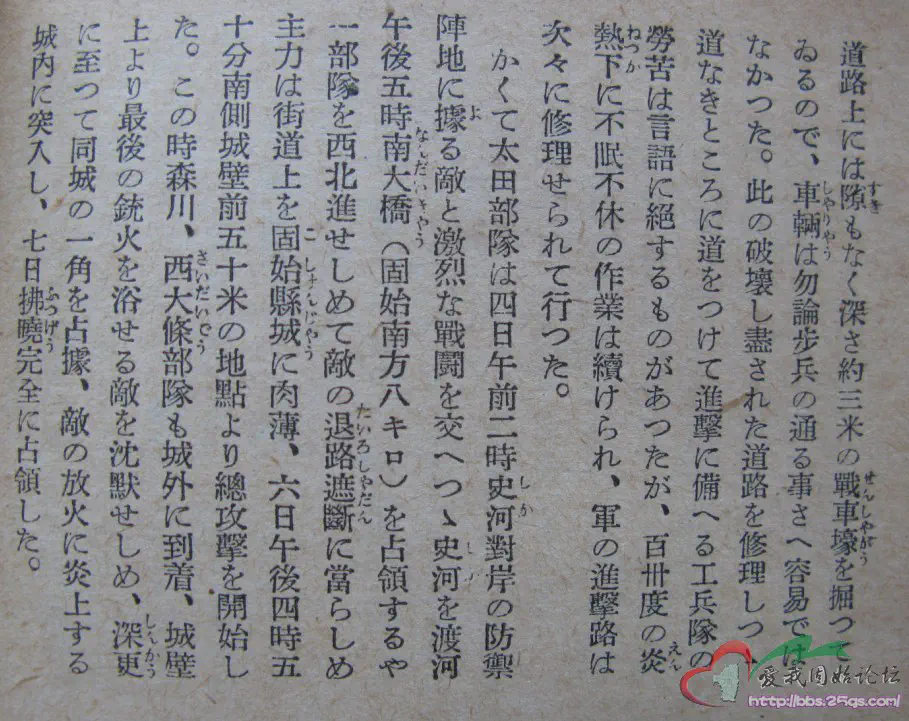 道路上には隙もなく深さ約三米の戰車壕を掘つて
ゐるので、車輛は勿論步兵の通る事さへ容易では
なかつた。此の破壞し盡された道路を修理しつゝ
道なきところに道をつけて進擊に備へる工兵隊の
勞苦は言語に絕するものがあつたが、百卅度の炎
熱下に不眠不休の作業は續けられ、軍の進擊路は
次々に修理せられて行つた。
かくて太田部隊は四日午前二時史河對岸の防禦
陣地に據る敵と激烈な戰鬪を交へつゝ史河を渡河
午後五時南大橋(固始南方八キロ)を占領するや
一部隊を西北進せしめて敵の退路遮斷に當らしめ
主力は街道上を固始縣城に肉薄、六日午後四時五
十分南側城壁前五十米の地點より總攻擊を開始し
た。この時森川、西大條部隊も城外に到着、城壁
上より最後の銃火を浴せる敵を沈默せしめ、深更
に至つて同城の一角を占據、敵の放火に炎上する
城內に突入し、七日拂曉完全に占領した。
爱我固始论坛
http://bbs.25gs.com/